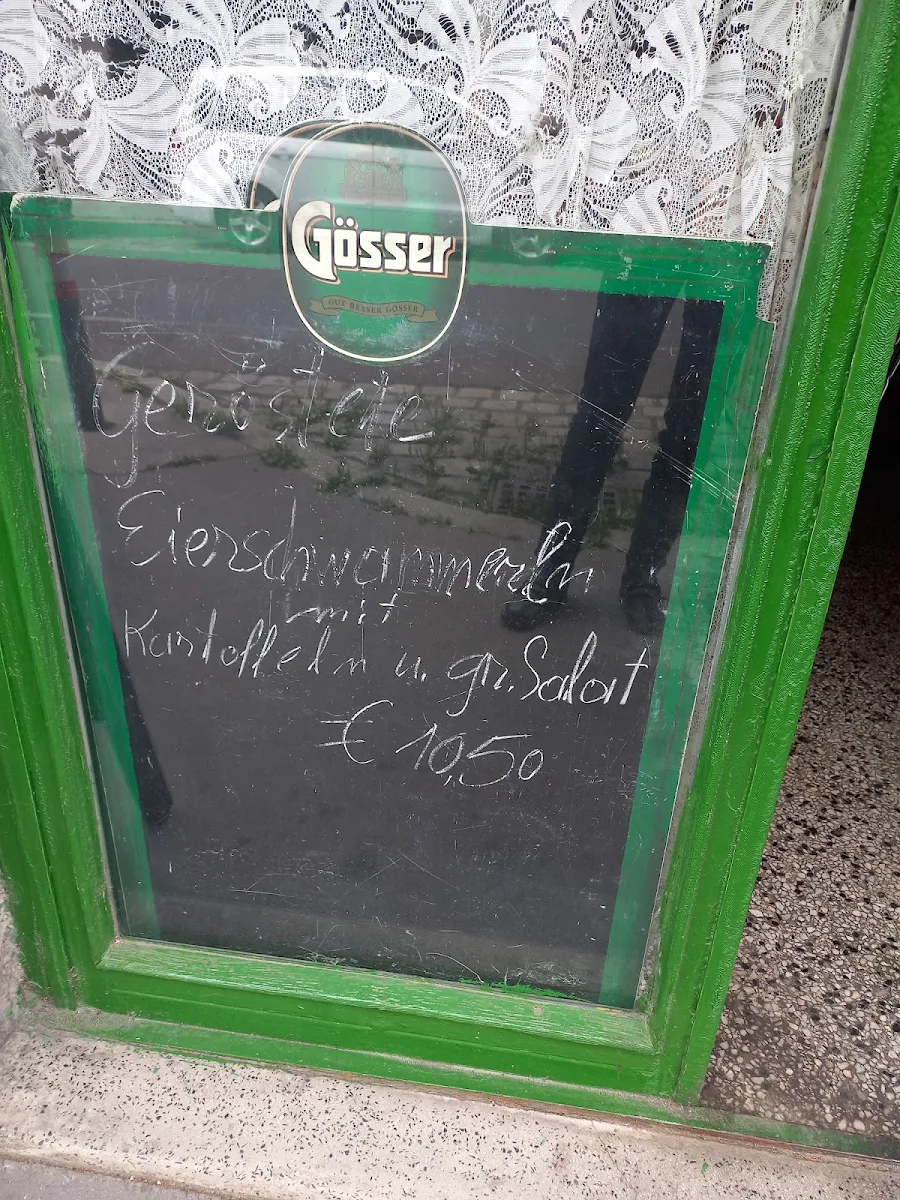 Gösser
GUT BESSER GÖSSER
Geröstete
Eierschwammerln
mit
Kartoffeln u. gr. Salat
€ 10,50